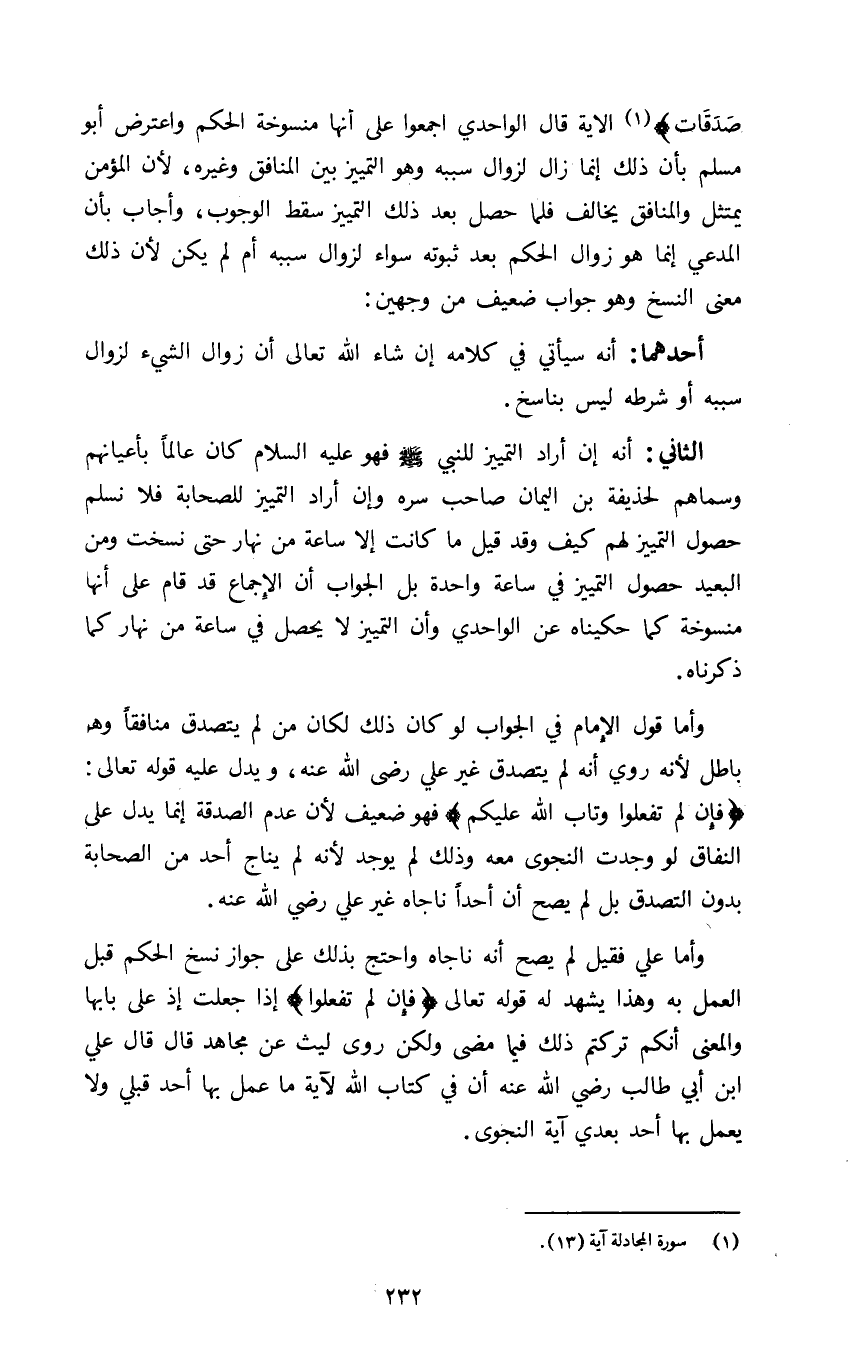 صَدَقَات﴾(١) الاية قال الواحدي اجمعوا على أنها منسوخة الحكم واعترض أبو
مسلم بأن ذلك إنما زال لزوال سببه وهو التمييز بين المنافق وغيره، لأن المؤمن
يمتثل والمنافق يخالف فلما حصل بعد ذلك التمييز سقط الوجوب، وأجاب بأن
المدعي إنما هو زوال الحكم بعد ثبوته سواء لزوال سببه أم لم يكن لأن ذلك
معنى النسخ وهو جواب ضعيف من وجهين:
أحدهما: أنه سيأتي في كلامه إن شاء الله تعالى أن زوال الشيء لزوال
سببه أو شرطه ليس بناسخ.
الثاني: أنه إن أراد التمييز للنبي ﷺ فهو عليه السلام كان عالماً بأعيانهم
وسماهم لحذيفة بن اليمان صاحب سره وإن أراد التمييز للصحابة فلا نسلم
حصول التمييز لهم كيف وقد قيل ما كانت إلا ساعة من نهار حتى نسخت ومن
البعيد حصول التمييز في ساعة واحدة بل الجواب أن الإجماع قد قام على أنها
منسوخة كما حكيناه عن الواحدي وأن التمييز لا يحصل في ساعة من نهار كما
ذكرناه.
وأما قول الإمام في الجواب لو كان ذلك لكان من لم يتصدق منافقاً وهو
باطل لأنه روي أنه لم يتصدق غير علي رضى الله عنه، ويدل عليه قوله تعالى:
﴿فإن لم تفعلوا وتاب الله عليكم﴾ فهو ضعيف لأن عدم الصدقة إنما يدل على
النفاق لو وجدت النجوى معه وذلك لم يوجد لأنه لم يناج أحد من الصحابة
بدون التصدق بل لم يصح أن أحداً ناجاه غير علي رضي الله عنه.
وأما علي فقيل لم يصح أنه ناجاه واحتج بذلك على جواز نسخ الحكم قبل
العمل به وهذا يشهد له قوله تعالى ﴿فإن لم تفعلوا﴾ إذا جعلت إذ على بابها
والمعنى أنكم تركتم ذلك فيما مضى ولكن روى ليث عن مجاهد قال قال علي
ابن أبي طالب رضي الله عنه أن في كتاب الله لآية ما عمل بها أحد قبلي ولا
يعمل بها أحد بعدي آية النجوى.
(١) سورة المجادلة آية (١٣).
٢٣٢